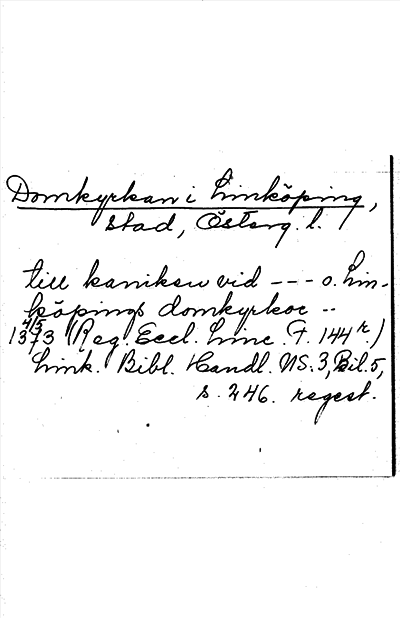 Domkyrkan i Linköping,
stad, Österg. l.
till kaniken vid --- o. Lin-
köpings domkyrkor --
13 4/5 73 (Reg. Eccl. Linc. F. 144 r.)
Link. Bibl. Handl. NS: 3, Bil. 5,
s. 246. regest.